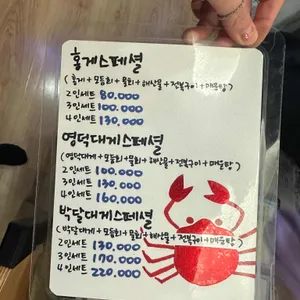 홍게스페셜
(홍게+모듬회+물회+해산물+전복구이+매운탕)
2인세트 80.000
3인세트 100.000
4인세트 130.000
영덕대게스페셜
(영덕대게+모듬회+물회+해산물+전복구이+매운탕)
2인세트 100.000
3인세트 130.000
4인세트 160.000
박달대게스페셜
(박달대게+모듬회+물회+해산물+전복구이+매운탕)
2인세트 130.000
3인세트 170.000
4인세트 220.000